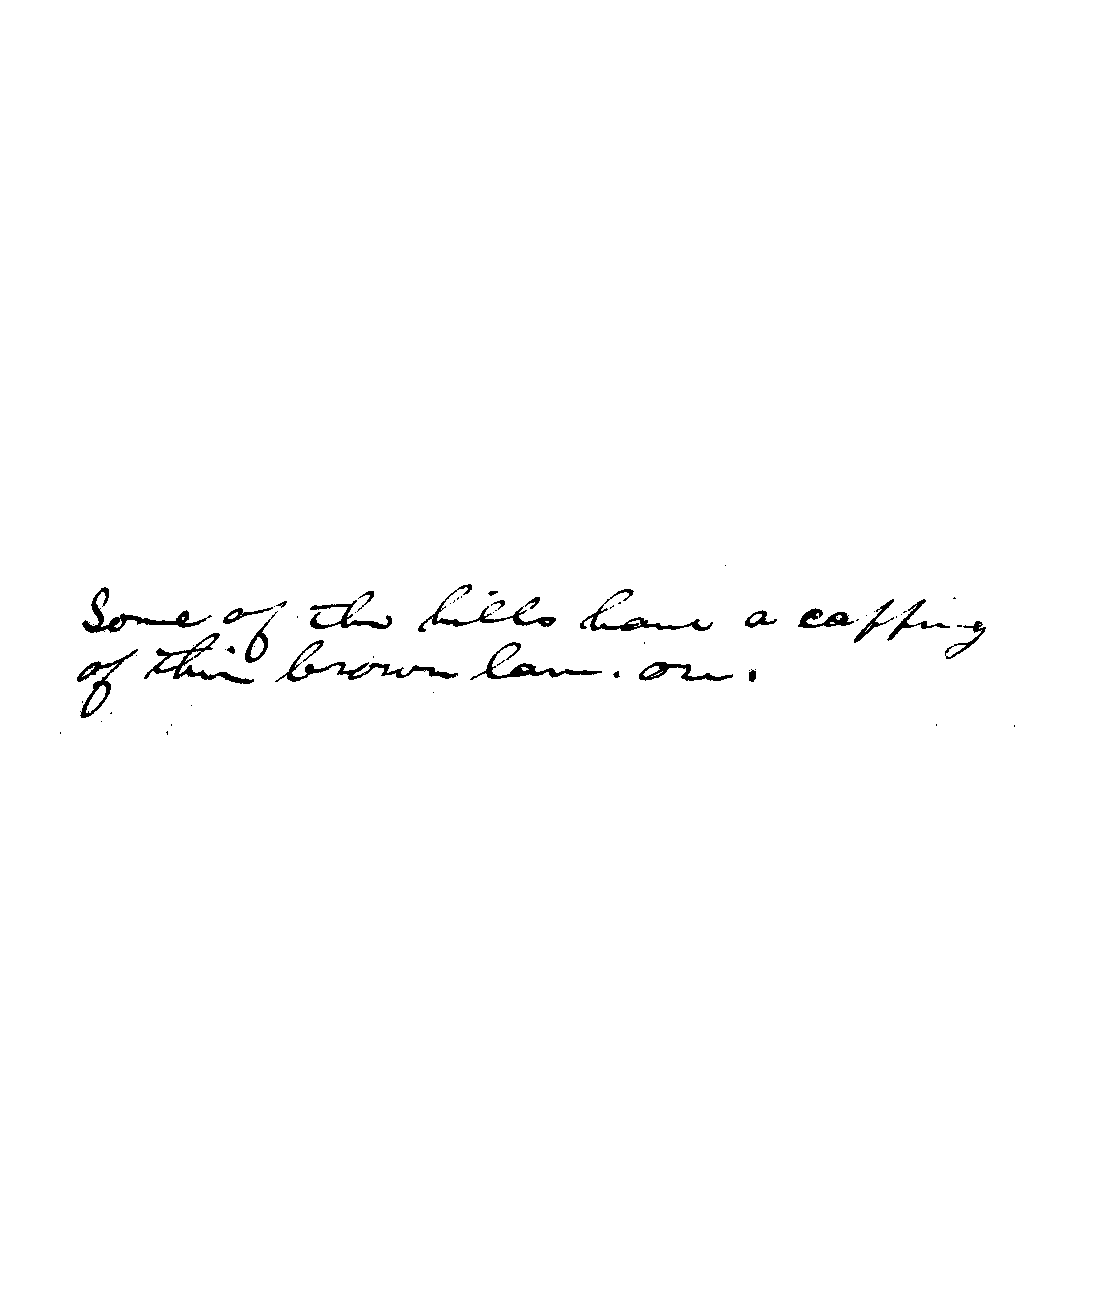 Some of the hills have a capping
of thin brown lam. ore.